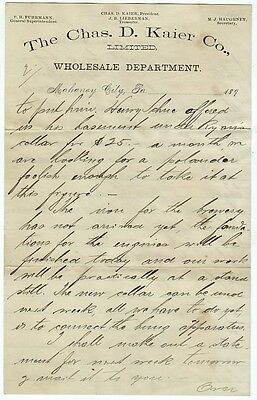 CHAS. D. KAIER, President.
F. H. FUHRMANN,
General Superintendent.
J. B. LIEBERMAN,
Treasurer.
M. J. HAUGHNEY,
Secretary.
The Chas. D. Kaier Co.,
LIMITED,
WHOLESALE DEPARTMENT.
2/
Mahanoy City, Pa 189
to put him, Harry offered
us his basement under Ryans
cellar for $25.- a month we
are looking for a polander
foolish enough to take it at
this
The iron for the brewery
has not arrived yet the founda
tions for the engines will be
finished today and our work
will be practically at a stand
still. The new cellar can be used
next week all we have to do yet
is to connect the bung apparatus.
I shall make out a state
ment for next week tomorrow
& mail it to you.
Over